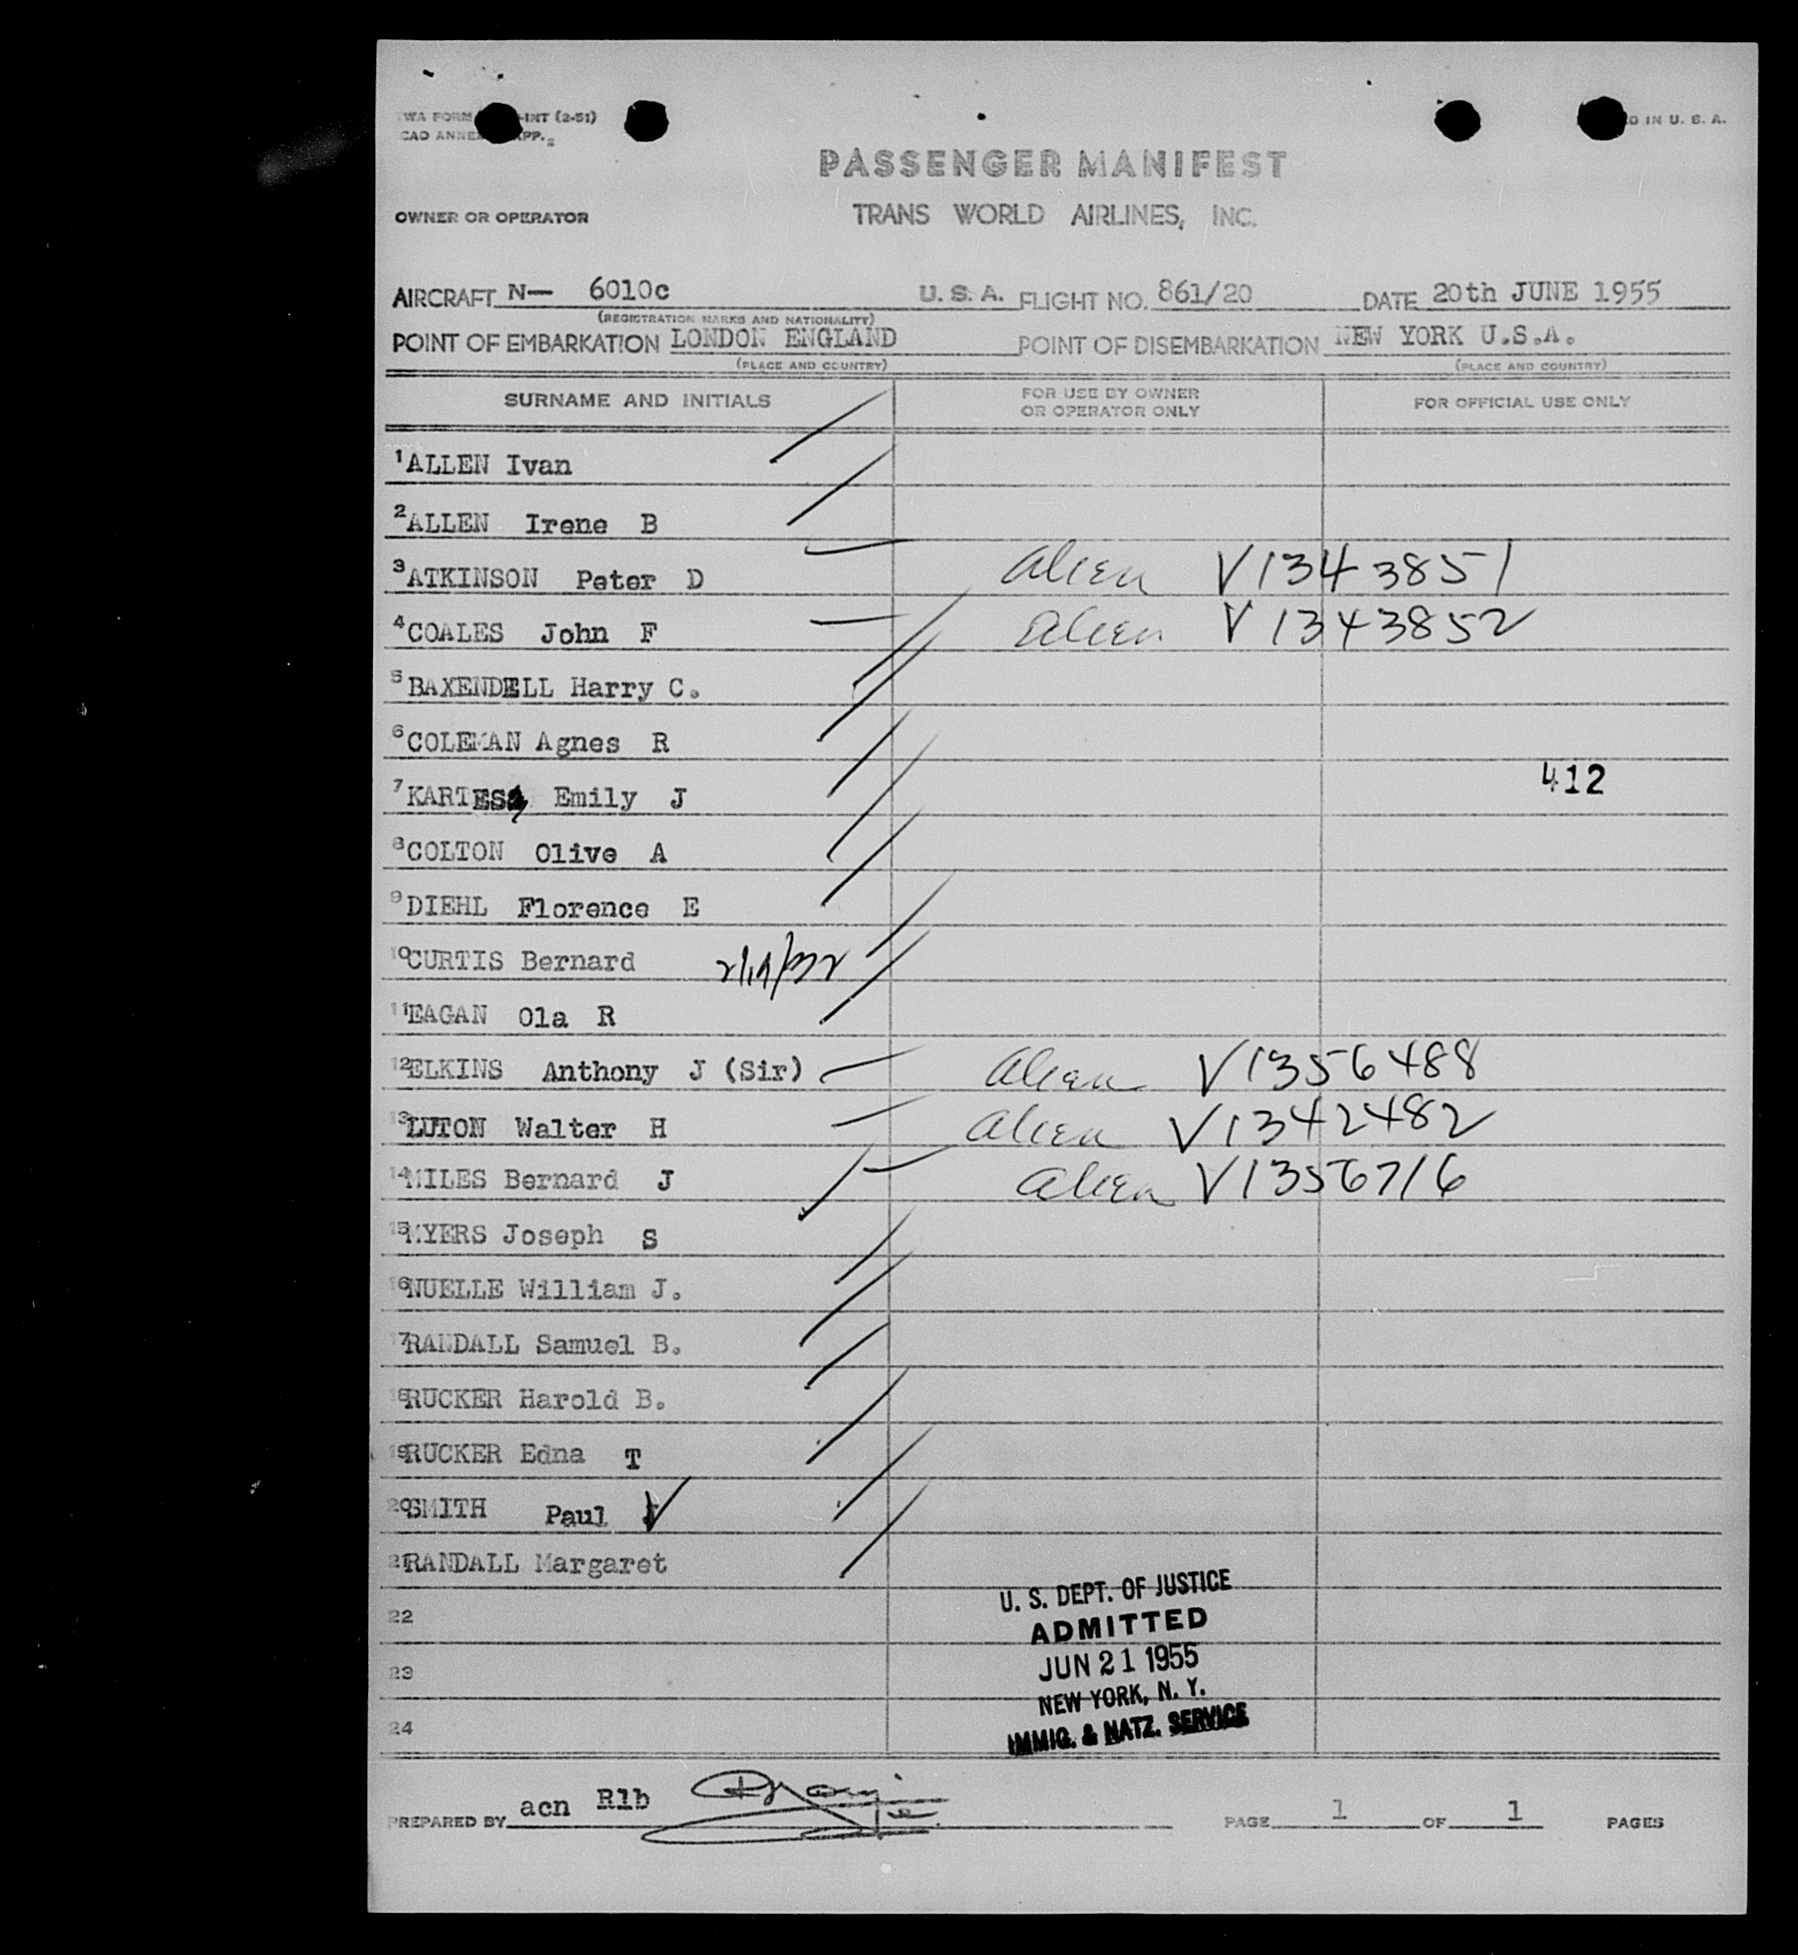 TWA FORM -INT (2-51)
CAO ANNEX APP. 2
D IN U. S. A.
PASSENGER MANIFEST
OWNER OR OPERATOR TRANS WORLD AIRLINES, INC.
AIRCRAFT N— 6010c U. S. A. FLIGHT NO. 861/20 DATE 20th JUNE 1955
(REGISTRATION MARKS AND NATIONALITY)
POINT OF EMBARKATION LONDON ENGLAND POINT OF DISEMBARKATION NEW YORK U.S.A.
(PLACE AND COUNTRY) (PLACE AND COUNTRY)
SURNAME AND INITIALS FOR USE BY OWNER OR OPERATOR ONLY FOR OFFICIAL USE ONLY
1 ALLEN Ivan
2 ALLEN Irene B
3 ATKINSON Peter D alien V1343851
4 COALES John F alien V1343852
5 BAXENDELL Harry C.
6 COLEMAN Agnes R
412
7 KARTESZ Emily J
8 COLTON Olive A
9 DIEHL Florence E
10 CURTIS Bernard
11 EAGAN Ola R
12 ELKINS Anthony J (Sir) alien V1356488
13 LUTON Walter H alien V1342482
14 MILES Bernard J alien V1356716
15 MYERS Joseph S
16 NUELLE William J.
17 RANDALL Samuel B.
18 RUCKER Harold B.
19 RUCKER Edna T
20 SMITH Paul
21 RANDALL Margaret
22
23
24
U. S. DEPT. OF JUSTICE
ADMITTED
JUN 21 1955
NEW YORK, N. Y.
IMMIG. & NATZ. SERVICE
PREPARED BY acn Rlb PAGE 1 OF 1 PAGES